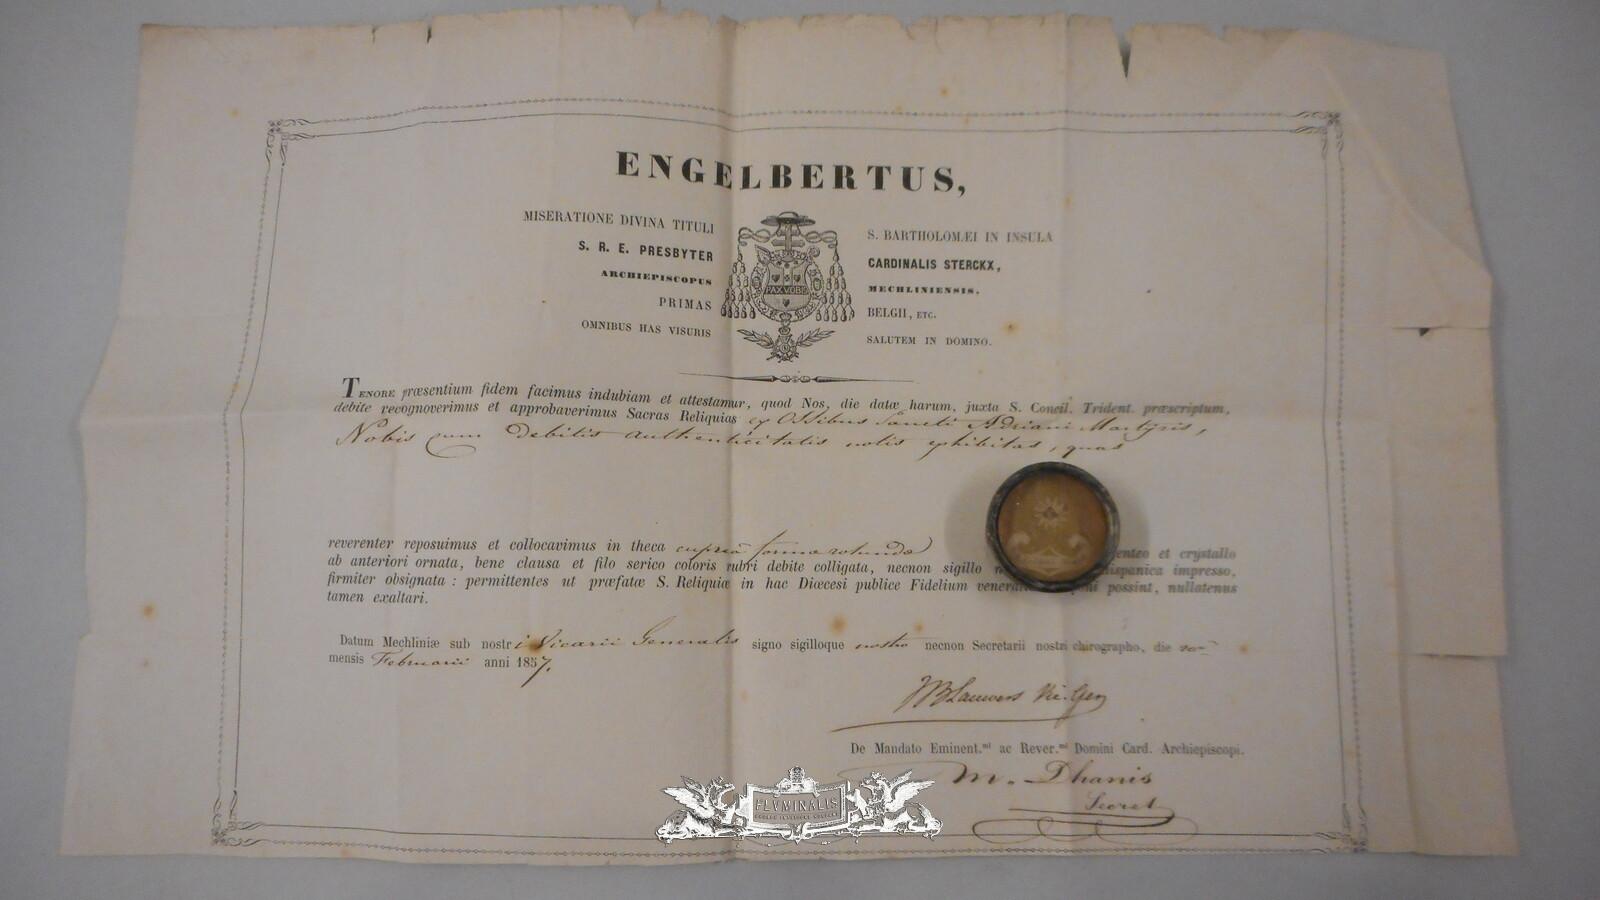 ENGELBERTUS,
MISERATIONE DIVINA TITULI S. BARTHOLOMÆI IN INSULA
S. R. E. PRESBYTER CARDINALIS STERCKX,
ARCHIEPISCOPUS MECHLINIENSIS,
PRIMAS BELGII, ETC.
OMNIBUS HAS VISURIS SALUTEM IN DOMINO.
PAX VOBIS
TENORE præsentium fidem facimus indubiam et attestamur, quod Nos, die datæ harum, juxta S. Concil. Trident. præscriptum,
debite recognoverimus et approbaverimus Sacras Reliquias ex Ossibus Sancti Adriani Martyris,
Nobis cum debitis authenticitatis notis exhibitas, quas
reverenter reposuimus et collocavimus in theca cupreâ forma rotunda enteo et crystallo
ab anteriori ornata, bene clausa et filo serico coloris rubri debite colligata, necnon sigillo hispanica impresso,
firmiter obsignata : permittentes ut præfatæ S. Reliquiæ in hac Diœcesi publice Fidelium venerat oni possint, nullatenus
tamen exaltari.
Datum Mechliniæ sub nostri Vicarii Generalis signo sigilloque nostro necnon Secretarii nostri chirographo, die
mensis Februarii anni 1857.
JB Lauwers Vic. Gen
De Mandato Eminent.mi ac Rever.mi Domini Card. Archiepiscopi.
M. Dhanis
Secret
FLVMINALIS